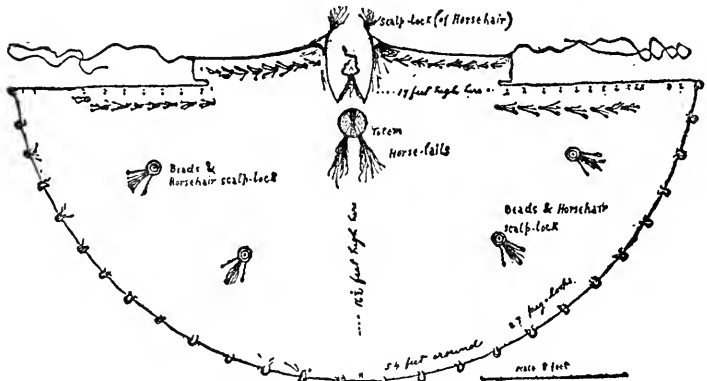 Scalp-lock (of Horsehair)
17 feet high here
Totem
Horse-tails
Beads &
Horsehair scalp-lock
Beads & Horsehair
scalp-lock
feet high here
54 feet around
27 peg-locks.
scale 8 feet